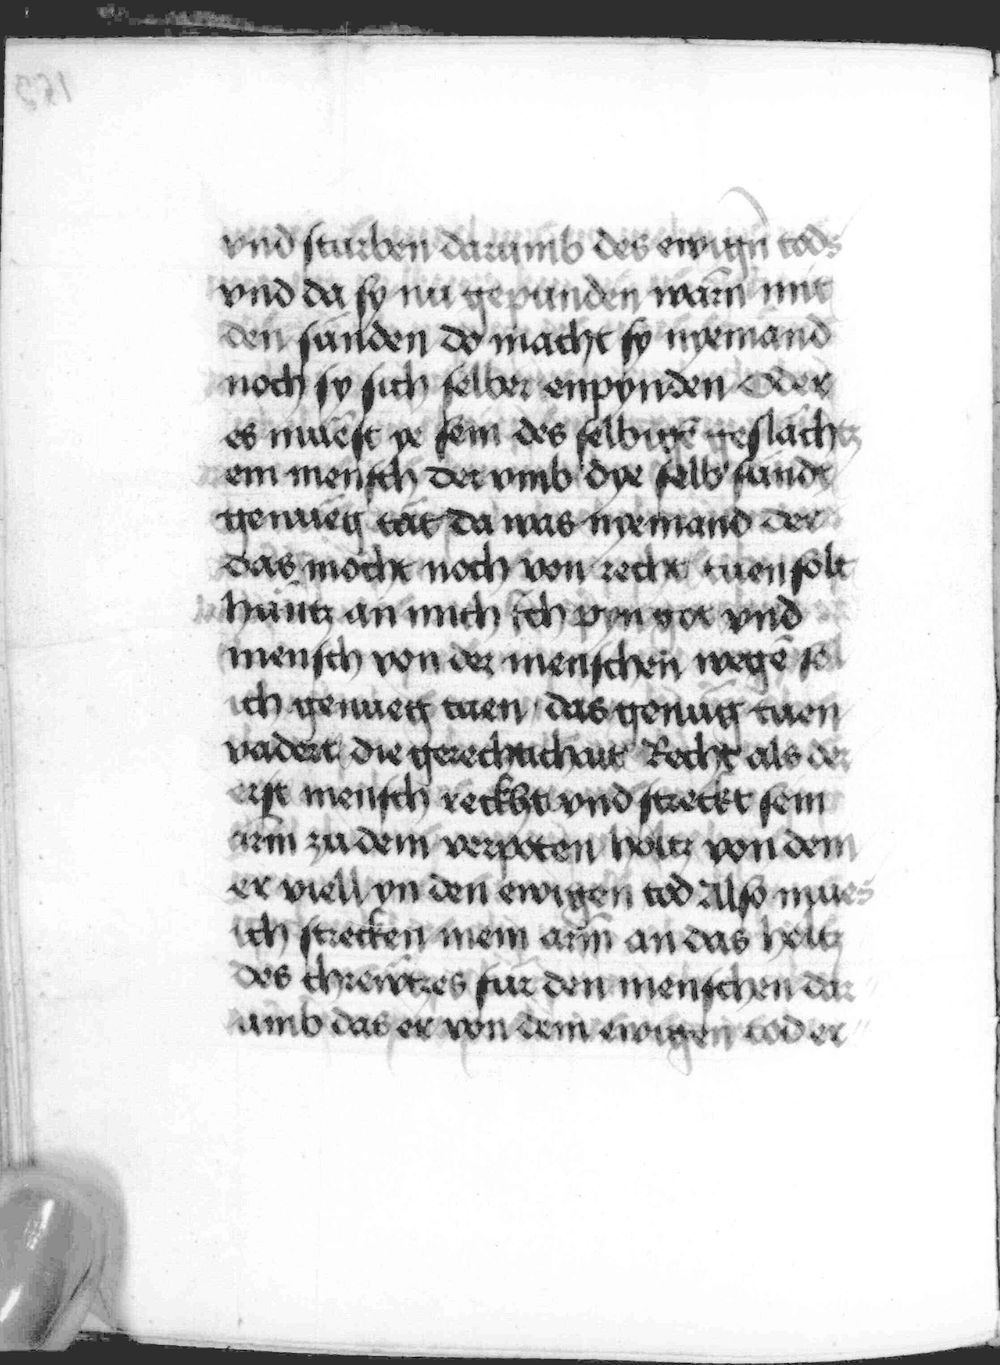 vnd sturben darumb des ewign tods
vnd da sy nu gepunden warn mit
den sunden do macht sy nyemand
noch sy sich selber enpynden Oder
es muest ye sein des selbigē geslächtz
ein mensch der vmb dye selb sundt
genueg tät da was nyemand der
das möcht noch von recht tuen solt
huntz an mich Ich pyn got vnd
mensch von der menschen wegē sol
ich genueg tuen das genug tuen
vadert die gerechtichait Recht als der
erst mensch reckht vnd streckt sein
arm zu dem verpoten holtz von dem
er viell yn den ewigen tod Also mues
ich strecken mein arm an das holtz
des chrewtzes für den menschen dar
umb das er von dem ewigen tod er